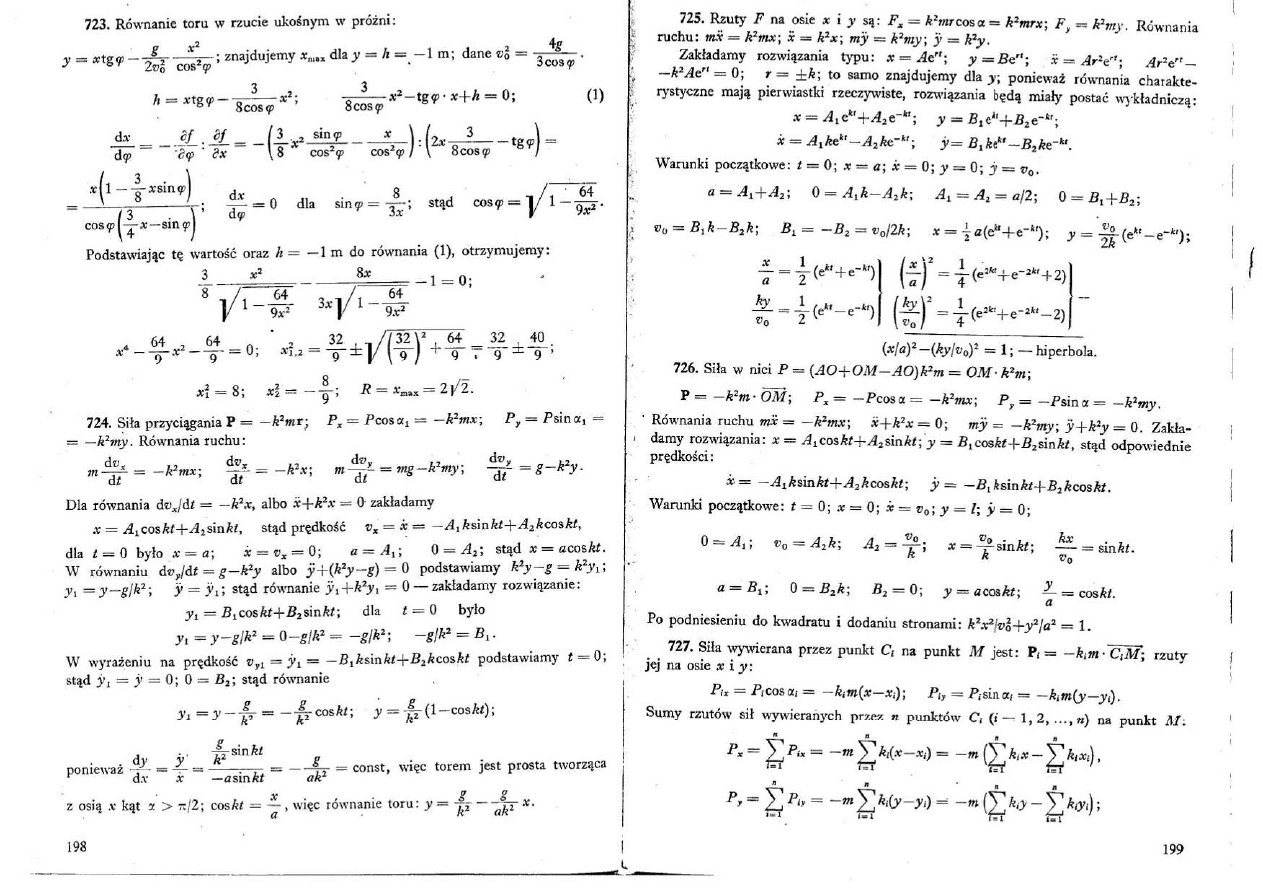 723. Równanie toru w rzucie ukośnym w próżni:
y = xtgφ − g/2v₀² · x²/cos²φ; znajdujemy xₘₐₓ dla y = h = −1 m; dane v₀² = 4g/3cosφ.
h = xtgφ − 3/8cosφ x²; 3/8cosφ x² − tgφ · x + h = 0; (1)
dx/dφ = − ∂f/∂φ : ∂f/∂x = −(3/8 x² sinφ/cos²φ − x/cos²φ) : (2x 3/8cosφ − tgφ) =
= x(1 − 3/8 xsinφ) / cosφ(3/4 x − sinφ); dx/dφ = 0 dla sinφ = 8/3x; stąd cosφ = √(1 − 64/9x²).
Podstawiając tę wartość oraz h = −1 m do równania (1), otrzymujemy:
3/8 x²/√(1 − 64/9x²) − 8x/3x√(1 − 64/9x²) − 1 = 0;
x⁴ − 64/9 x² − 64/9 = 0; x²₁,₂ = 32/9 ± √((32/9)² + 64/9) = 32/9 ± 40/9;
x₁² = 8; x₂² = −8/9; R = xₘₐₓ = 2√2.
724. Siła przyciągania P = −k²mr; Pₓ = Pcosα₁ = −k²mx; Pᵧ = Psinα₁ =
= −k²my. Równania ruchu:
m dvₓ/dt = −k²mx; dvₓ/dt = −k²x; m dvᵧ/dt = mg−k²my; dvᵧ/dt = g−k²y.
Dla równania dvₓ/dt = −k²x, albo ẍ+k²x = 0 zakładamy
x = A₁coskt+A₂sinkt, stąd prędkość vₓ = ẋ = −A₁ksinkt+A₂kcoskt,
dla t = 0 było x = a; ẋ = vₓ = 0; a = A₁; 0 = A₂; stąd x = acoskt.
W równaniu dvᵧ/dt = g−k²y albo ÿ+(k²y−g) = 0 podstawiamy k²y−g = k²y₁;
y₁ = y−g/k²; ÿ = ÿ₁; stąd równanie ÿ₁+k²y₁ = 0 — zakładamy rozwiązanie:
y₁ = B₁coskt+B₂sinkt; dla t = 0 było
y₁ = y−g/k² = 0−g/k² = −g/k²; −g/k² = B₁.
W wyrażeniu na prędkość vᵧ₁ = ẏ₁ = −B₁ksinkt+B₂kcoskt podstawiamy t = 0;
stąd ẏ₁ = ẏ = 0; 0 = B₂; stąd równanie
y₁ = y − g/k² = −g/k² coskt; y = g/k² (1−coskt);
ponieważ dy/dx = ẏ/ẋ = g/k² sinkt / −asinkt = −g/ak² = const, więc torem jest prosta tworząca
z osią x kąt α > π/2; coskt = x/a, więc równanie toru: y = g/k² − g/ak² x.
198
725. Rzuty F na osie x i y są: Fₓ = k²mrcosα = k²mrx; Fᵧ = k²my. Równania
ruchu: mẍ = k²mx; ẍ = k²x; mÿ = k²my; ÿ = k²y.
Zakładamy rozwiązania typu: x = Aeʳᵗ; y = Beʳᵗ; ẍ = Ar²eʳᵗ; Ar²eʳᵗ−
−k²Aeʳᵗ = 0; r = ±k; to samo znajdujemy dla y; ponieważ równania charakte-
rystyczne mają pierwiastki rzeczywiste, rozwiązania będą miały postać wykładniczą:
x = A₁eᵏᵗ+A₂e⁻ᵏᵗ; y = B₁eᵏᵗ+B₂e⁻ᵏᵗ;
ẋ = A₁keᵏᵗ−A₂ke⁻ᵏᵗ; ẏ = B₁keᵏᵗ−B₂ke⁻ᵏᵗ.
Warunki początkowe: t = 0; x = a; ẋ = 0; y = 0; ẏ = v₀.
a = A₁+A₂; 0 = A₁k−A₂k; A₁ = A₂ = a/2; 0 = B₁+B₂;
v₀ = B₁k−B₂k; B₁ = −B₂ = v₀/2k; x = ½a(eᵏᵗ+e⁻ᵏᵗ); y = v₀/2k (eᵏᵗ−e⁻ᵏᵗ);
x/a = 1/2 (eᵏᵗ+e⁻ᵏᵗ) | (x/a)² = 1/4 (e²ᵏᵗ+e⁻²ᵏᵗ+2)
ky/v₀ = 1/2 (eᵏᵗ−e⁻ᵏᵗ) | (ky/v₀)² = 1/4 (e²ᵏᵗ+e⁻²ᵏᵗ−2) | −
(x/a)²−(ky/v₀)² = 1; — hiperbola.
726. Siła w nici P = (AO+OM−AO)k²m = OM·k²m;
P = −k²m·OM; Pₓ = −Pcosα = −k²mx; Pᵧ = −Psinα = −k²my.
Równania ruchu mẍ = −k²mx; ẍ+k²x = 0; mÿ = −k²my; ÿ+k²y = 0. Zakła-
damy rozwiązania: x = A₁coskt+A₂sinkt; y = B₁coskt+B₂sinkt, stąd odpowiednie
prędkości:
ẋ = −A₁ksinkt+A₂kcoskt; ẏ = −B₁ksinkt+B₂kcoskt.
Warunki początkowe: t = 0; x = 0; ẋ = v₀; y = l; ẏ = 0;
0 = A₁; v₀ = A₂k; A₂ = v₀/k; x = v₀/k sinkt; kx/v₀ = sinkt.
a = B₁; 0 = B₂k; B₂ = 0; y = acoskt; y/a = coskt.
Po podniesieniu do kwadratu i dodaniu stronami: k²x²/v₀²+y²/a² = 1.
727. Siła wywierana przez punkt Cᵢ na punkt M jest: Pᵢ = −kᵢm·CᵢM; rzuty
jej na osie x i y:
Pᵢₓ = Pᵢcosαᵢ = −kᵢm(x−xᵢ); Pᵢᵧ = Pᵢsinαᵢ = −kᵢm(y−yᵢ).
Sumy rzutów sił wywieranych przez n punktów Cᵢ (i — 1, 2, ..., n) na punkt M:
Pₓ = Σⁿᵢ₌₁ Pᵢₓ = −m Σⁿᵢ₌₁ kᵢ(x−xᵢ) = −m (Σⁿᵢ₌₁ kᵢx − Σⁿᵢ₌₁ kᵢxᵢ),
Pᵧ = Σⁿᵢ₌₁ Pᵢᵧ = −m Σⁿᵢ₌₁ kᵢ(y−yᵢ) = −m (Σⁿᵢ₌₁ kᵢy − Σⁿᵢ₌₁ kᵢyᵢ);
199